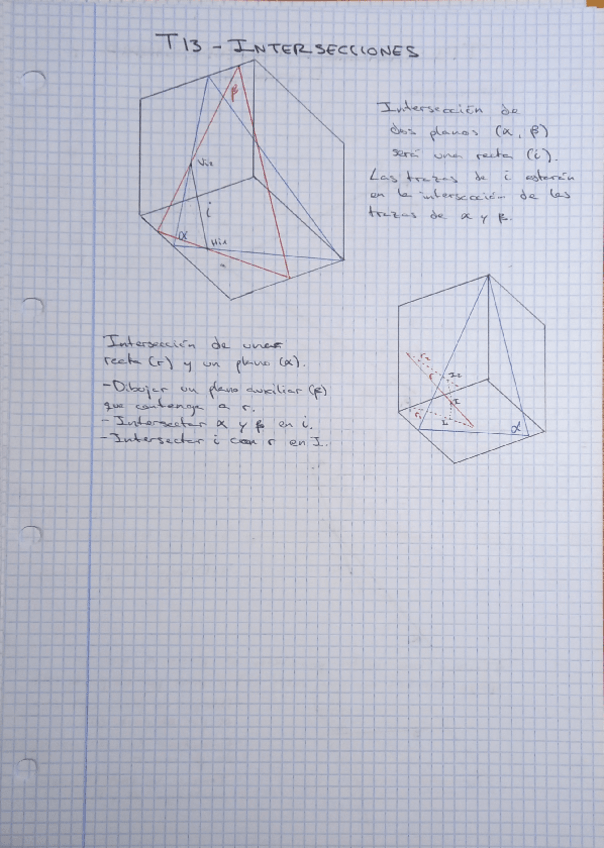 T13 - INTERSECCIONES
β
Intersección de
dos planos (α, β)
será una recta (i).
Las trazas de i estarán
en la intersección de las
trazas de α y β.
i
α
Intersección de una
recta (r) y un plano (α).
-Dibujar un plano auxiliar (β)
que contenga a r.
- Intersectar α y β en i.
- Intersectar i con r en I.
r
I
α